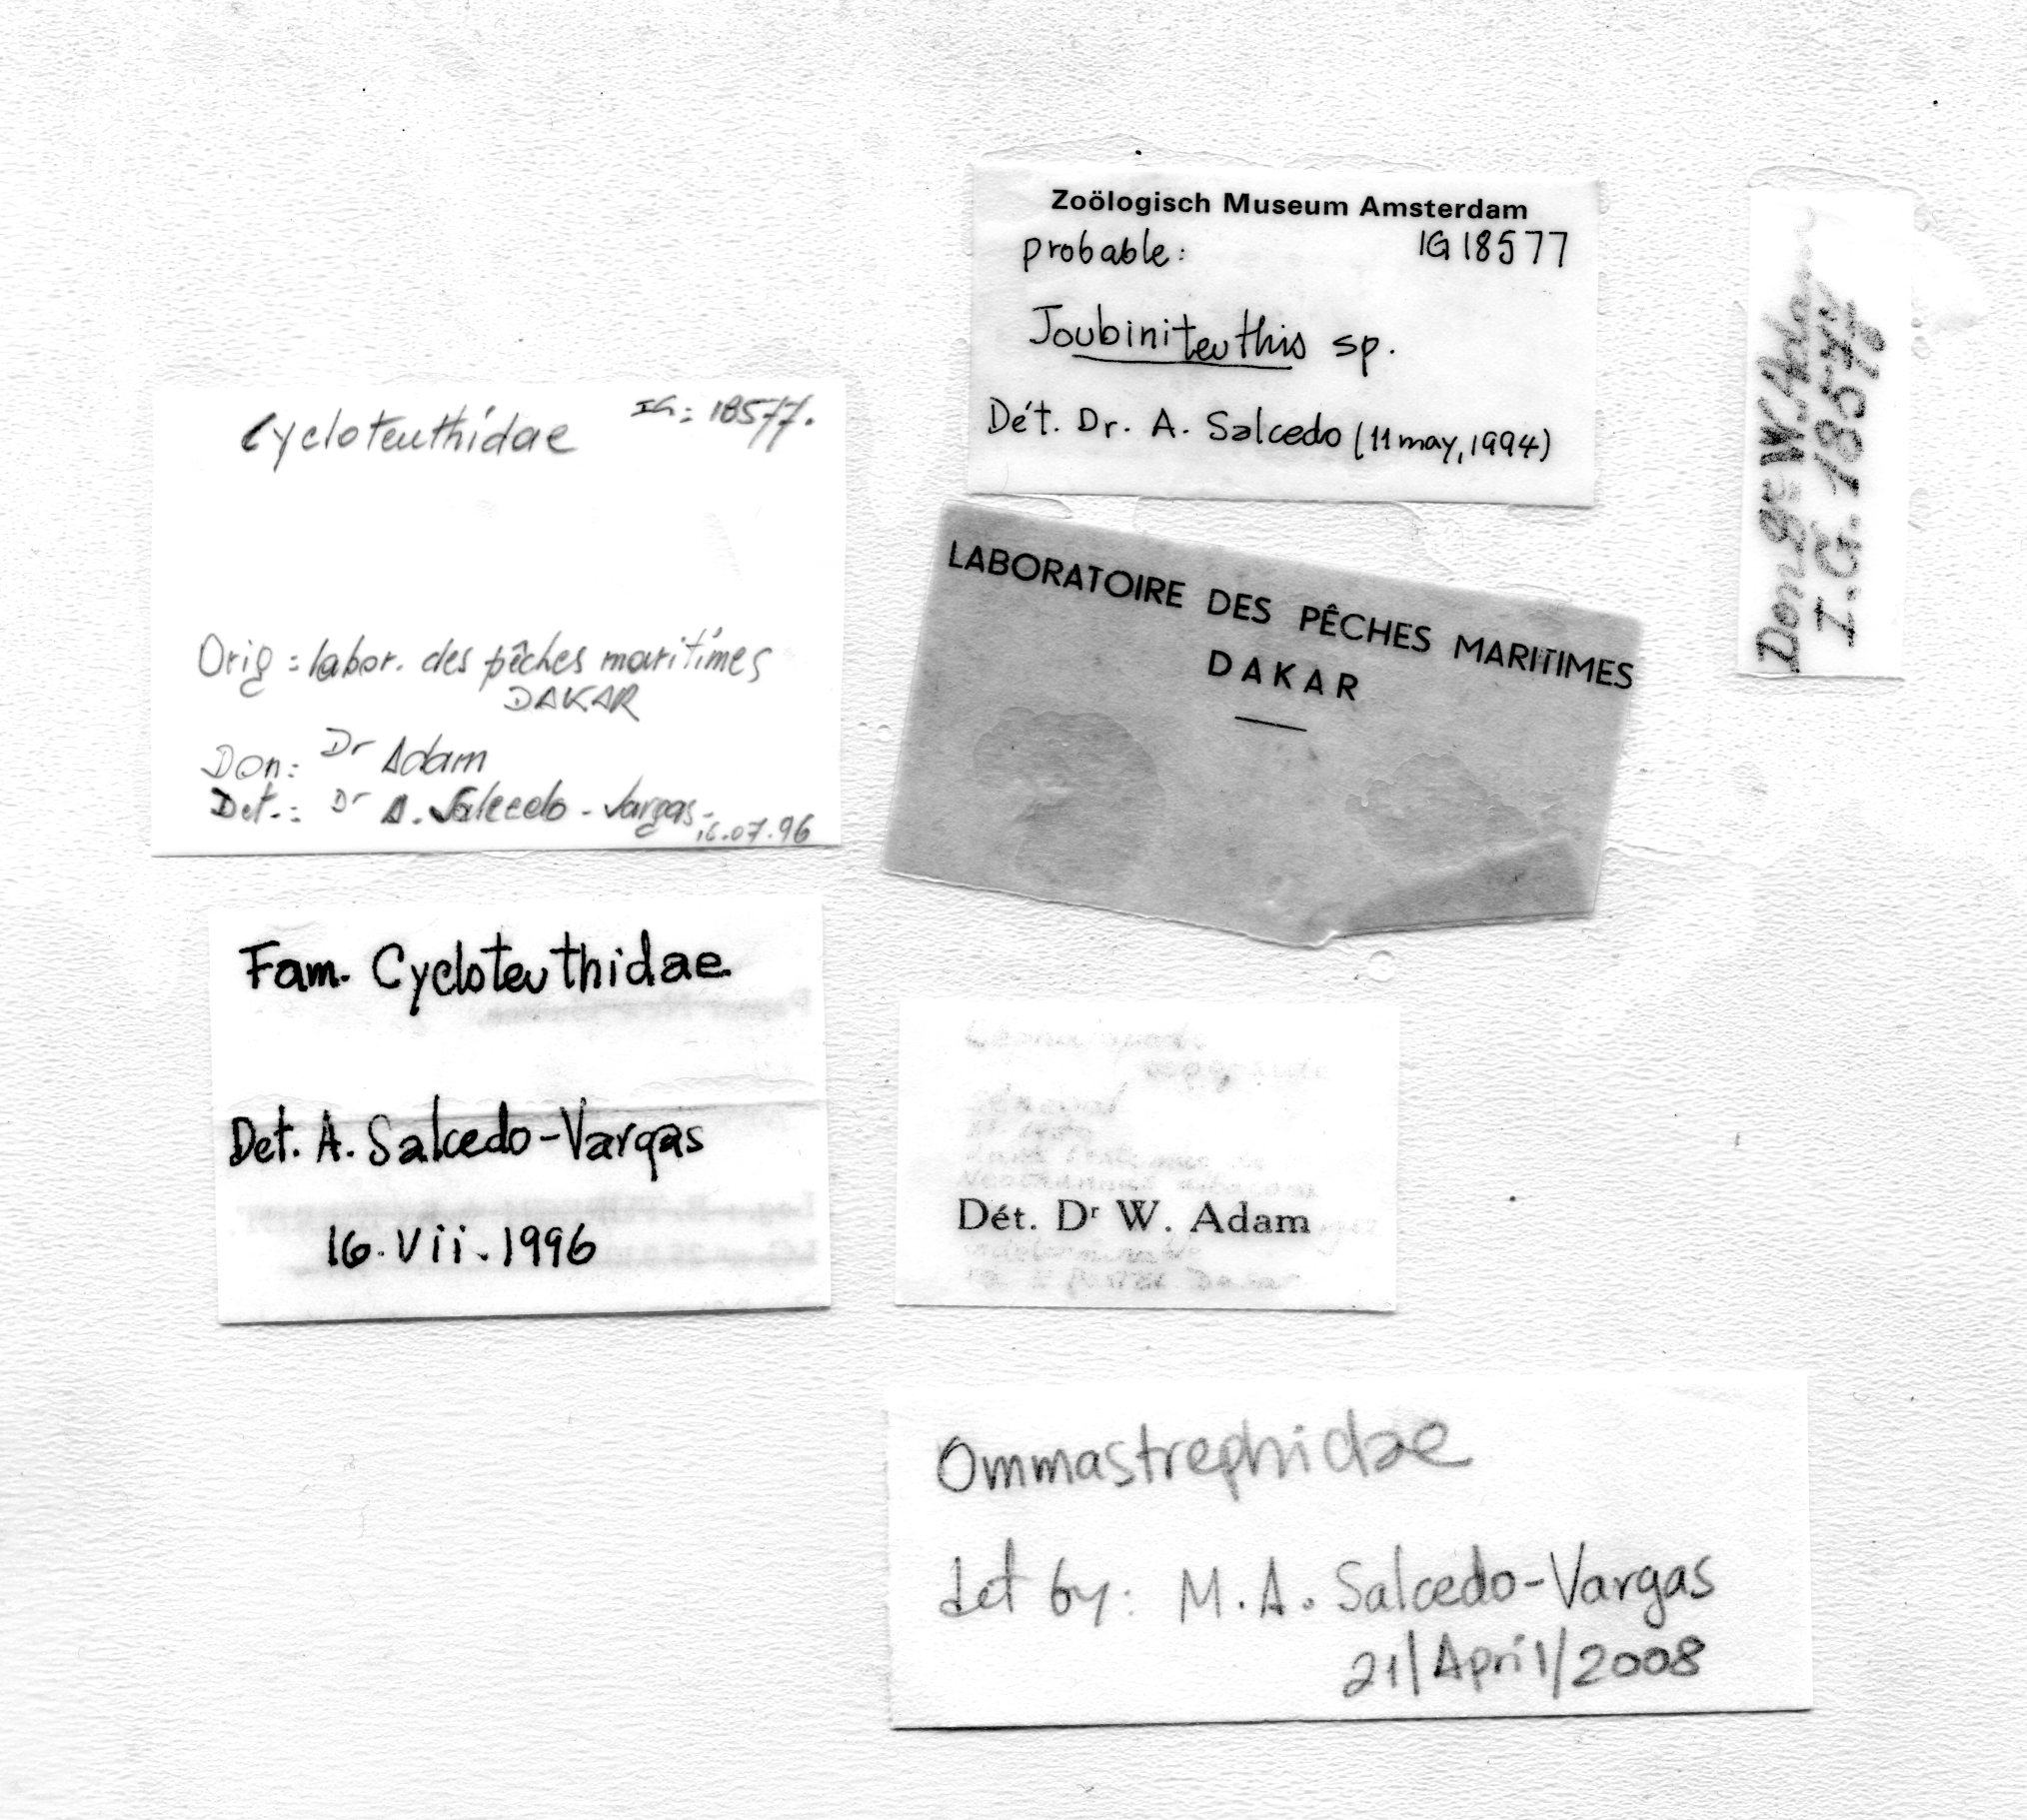 Zoölogisch Museum Amsterdam
probable: IG 18577
Joubiniteuthis sp.
Dét. Dr. A. Salcedo (11 may, 1994)
Don gr W. Adam
I.G. 18577
Cycloteuthidae IG: 18577.
Orig: labor. des pêches maritimes
DAKAR
Don: Dr Adam
Det.: Dr A. Salcedo-Vargas
16.07.96
LABORATOIRE DES PÊCHES MARITIMES
DAKAR
Fam. Cycloteuthidae
Det. A. Salcedo-Vargas
16.Vii.1996
Dét. Dr W. Adam
Ommastrephidae
det by: M.A. Salcedo-Vargas
21/April/2008